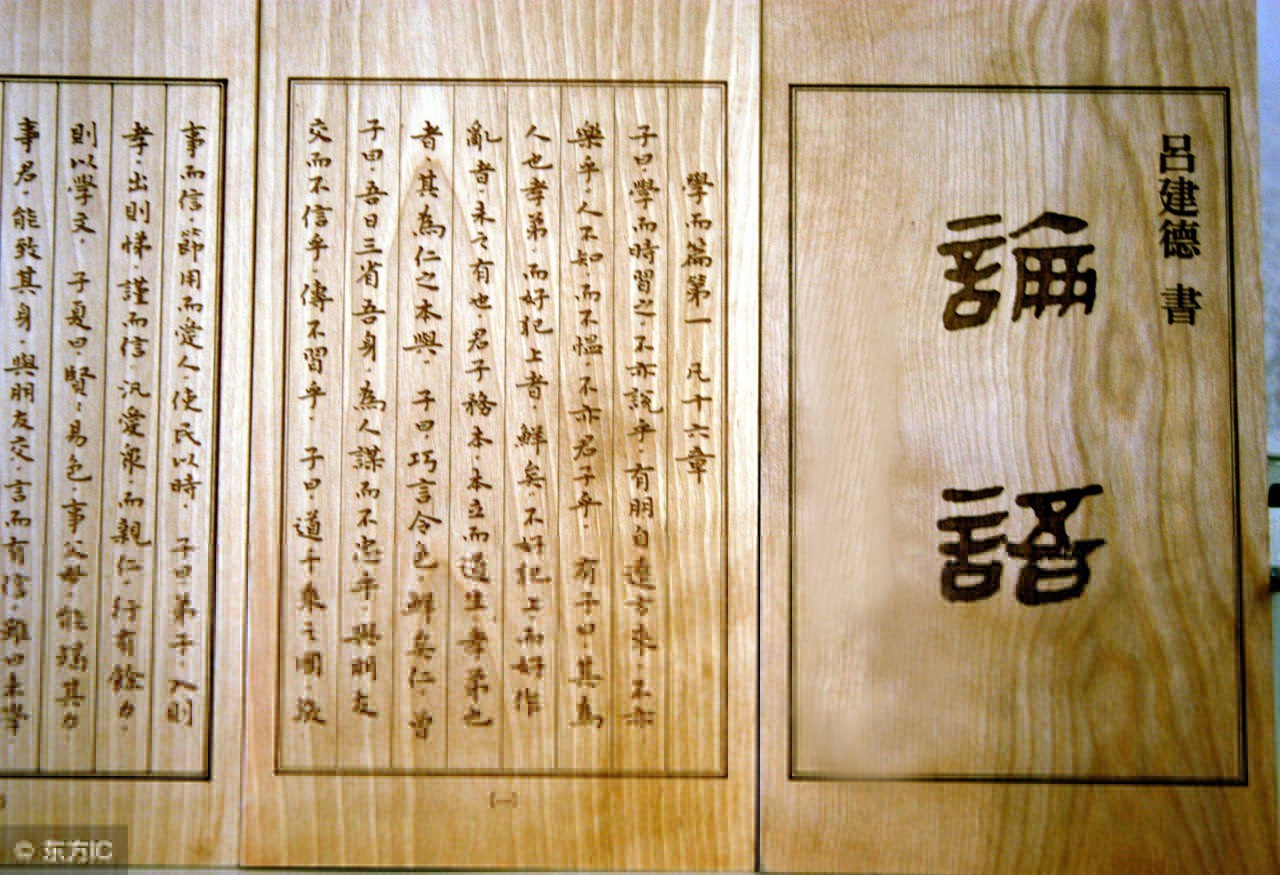 呂建德 書
論語
學而篇第一 凡十六章
子曰.學而時習之.不亦說乎.有朋自遠方來.不亦
樂乎.人不知.而不慍.不亦君子乎. 有子曰.其為
人也孝弟.而好犯上者.鮮矣.不好犯上而好作
亂者.未之有也.君子務本.本立而道生.孝弟也
者.其為仁之本與. 子曰.巧言令色.鮮矣仁.曾
子曰.吾日三省吾身.為人謀而不忠乎.與朋友
交而不信乎.傳不習乎. 子曰.道千乘之國.敬
(一)
事而信.節用而愛人.使民以時. 子曰.弟子.入則
孝.出則悌.謹而信.汎愛眾.而親仁.行有餘力.
則以學文. 子夏曰.賢:易色.事父母能竭其力
事君.能致其身.與朋友交.言而有信.雖曰未學
© 东方IC